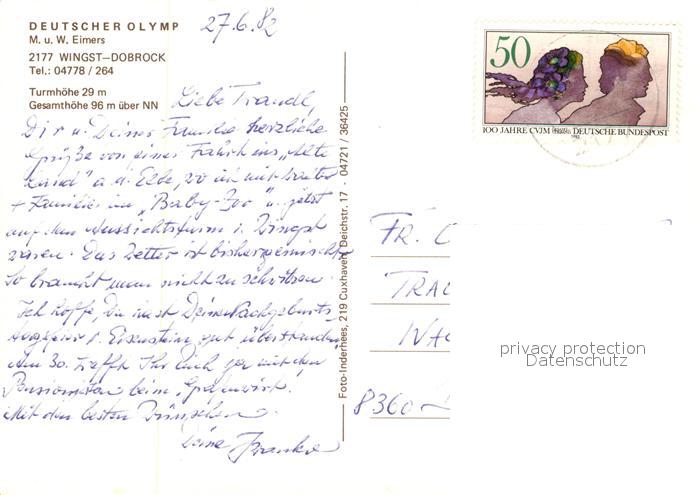 DEUTSCHER OLYMP
M. u. W. Eimers
2177 WINGST–DOBROCK
Tel.: 04778 / 264
Turmhöhe 29 m
Gesamthöhe 96 m über NN
27.6.82
Liebe Traudl,
Dir u. Deiner Familie herzliche
Grüße von einer Fahrt ins „Alte
Land" a. d. Elbe, wo wir mit
+ Familie im „Baby-Zoo" u. jetzt
auf dem Aussichtsturm i. Wingst
waren. Das Wetter ist bisher gemischt
So braucht man nicht zu schwitzen.
Ich hoffe, Du hast Deine Nachgeburts-
tagsfeier i. Eisenstein gut überstanden
Am 30. trefft Ihr Euch ja mit den
Pensionisten beim
Mit den besten Wünschen
Deine
Foto-Inderhees, 219 Cuxhaven, Deichstr. 17 - 04721 / 36425
50
100 JAHRE CVJM DEUTSCHE BUNDESPOST
1982
FR.
TRA
8360
privacy protection
Datenschutz